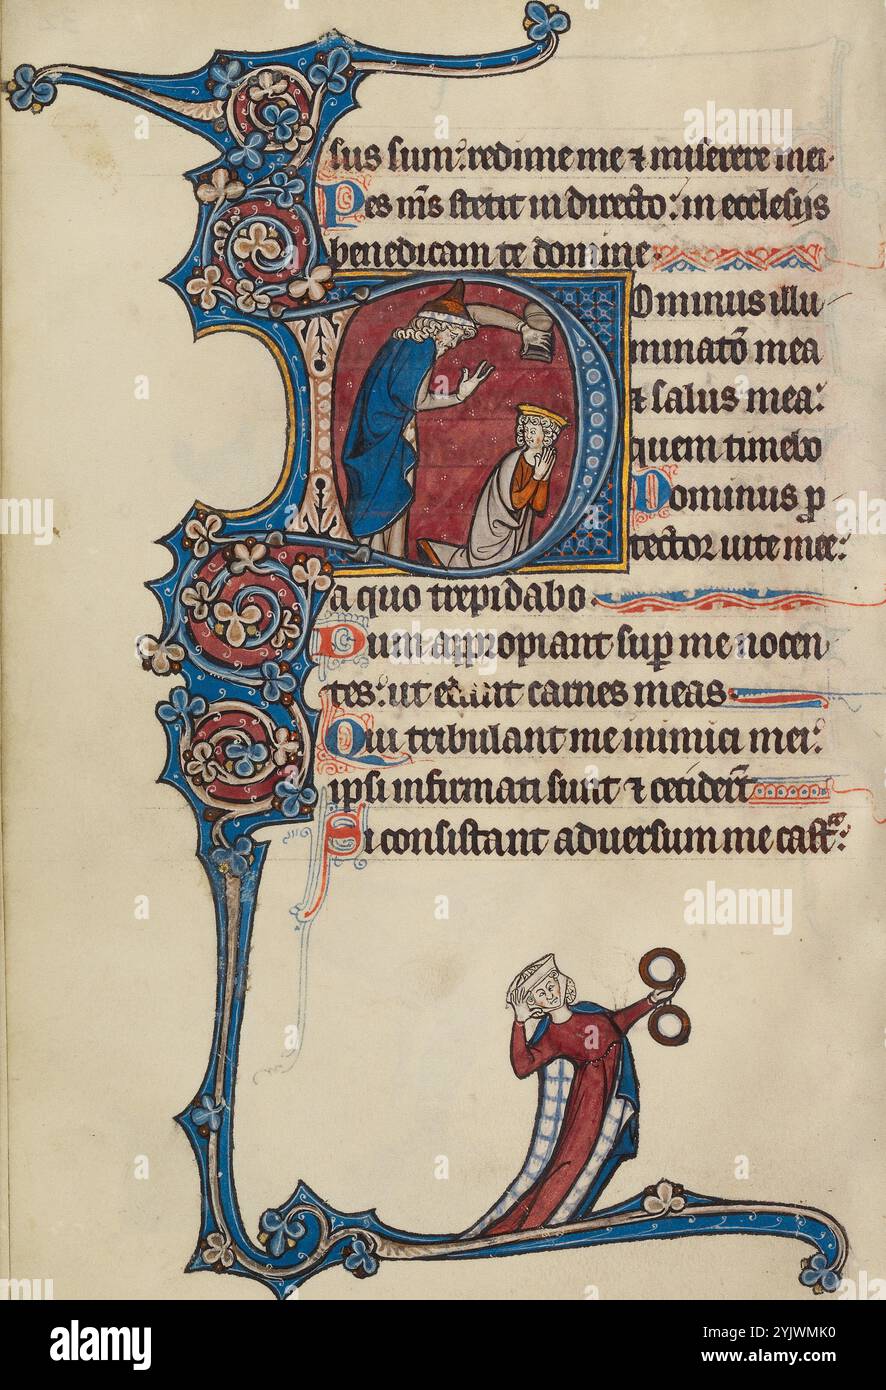 sus sum: redime me ⁊ miserere mei.
Pes m̅s stetit in directo: in ecclesiis
benedicam te domine.
Dominus illu
minatõ mea
⁊ salus mea:
quem timebo
Dominus p
tector uite mee:
a quo trepidabo.
Dum appropiant sup me nocen
tes: ut edant carnes meas.
Qui tribulant me inimici mei:
ipsi infirmati sunt ⁊ ceciderũt
Si consistant aduersum me cast̾:
alamy
Image ID: 2YJWMK0
www.alamy.com